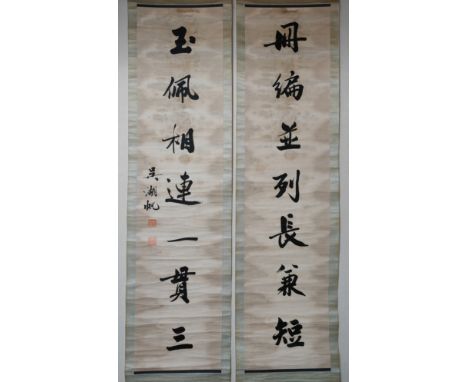 冊編並列長兼短
玉佩相連一貫三
吳湖帆